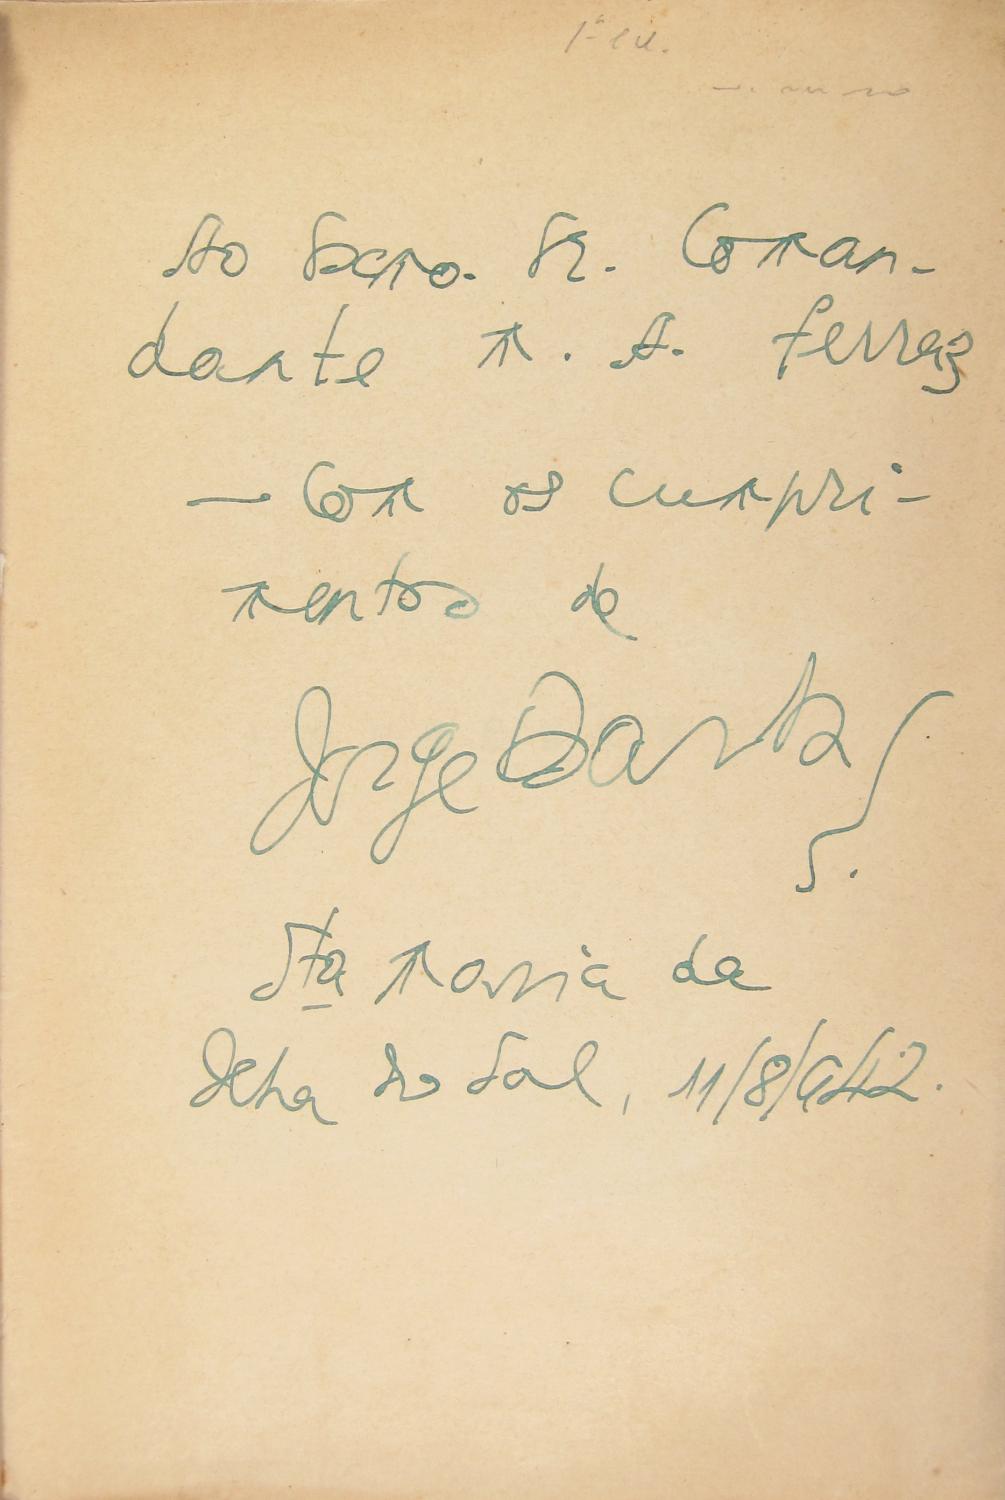 1ª ed.
Ao Exmo. Sr. Coman-
dante M. A. Ferraz
— Com os cumpri-
mentos de
Jorge Barbosa
Sta Maria da
Ilha do Sal, 11/8/942.